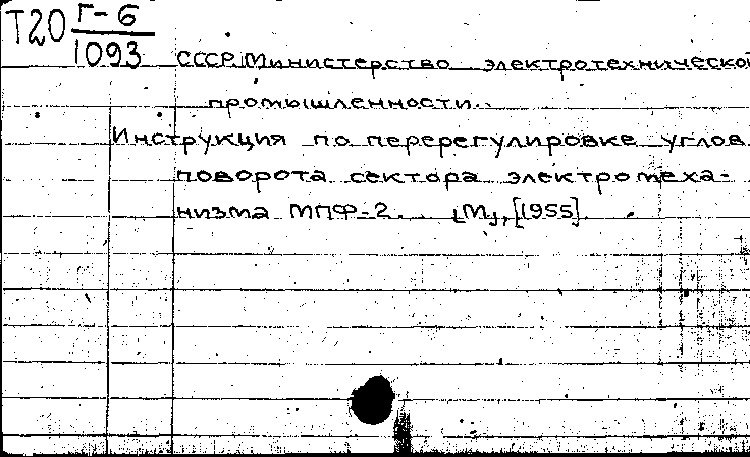 Т20 Г-6
1093
СССР. Министерство электротехнической
промышленности.
Инструкция по перерегулировке углов
поворота сектора электромеха-
низма МПФ-2. [М], [1955].